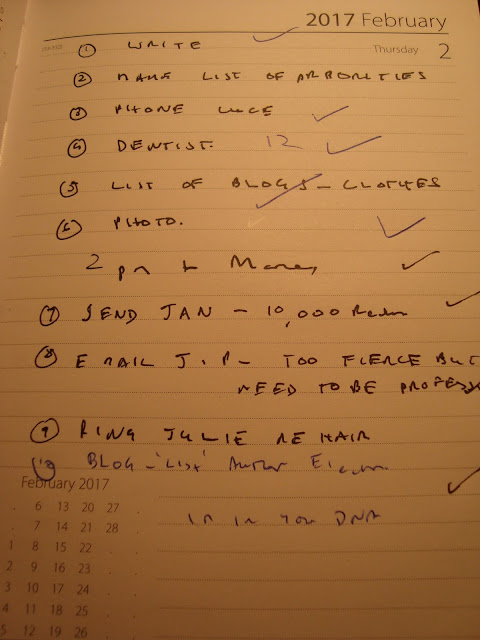 2017 February
Thursday 2
① WRITE
② MAKE LIST OF
③ PHONE LUCE
④ DENTIST. 12
⑤ LIST OF BLOGS - CLOTHES
⑥ PHOTO.
2 pm + Money
⑦ SEND JAN - 10,000
⑧ EMAIL J.P - TOO FIERCE BUT
NEED TO BE PROFESS
⑨ RING JULIE RE HAIR
⑩ BLOG - 'LIST' Author
February 2017
in your DNA
. 6 13 20 27 .
. 7 14 21 28 .
1 8 15 22 . .
2 9 16 23 . .
3 10 17 24 . .
4 11 18 25 . .
5 12 19 26 . .